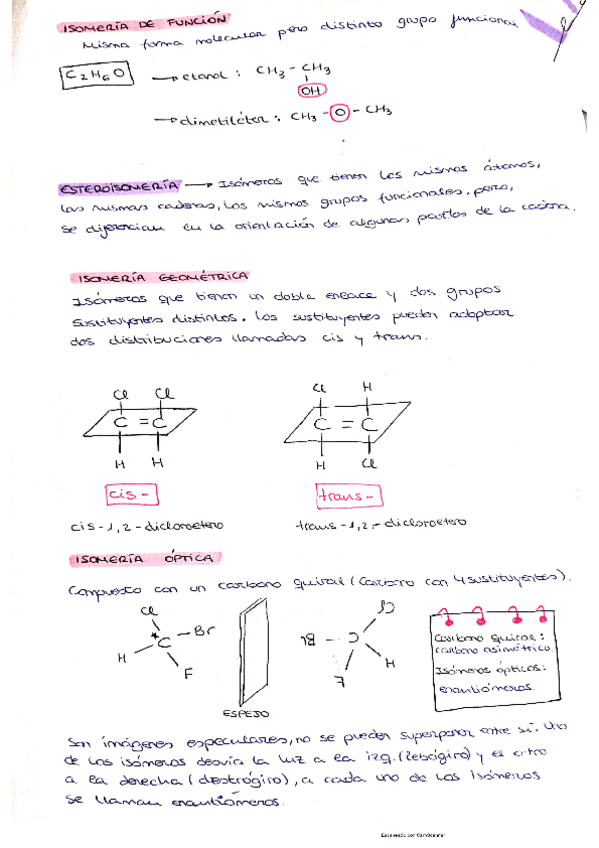 ISOMERÍA DE FUNCIÓN
Misma forma molecular pero distinto grupo funcional
C2H6O → etanol : CH3 - CH3
OH
→ dimetiléter : CH3 - O - CH3
ESTEROISOMERÍA → Isómeros que tienen los mismos átomos,
las mismas cadenas, los mismos grupos funcionales, pero,
se diferencian en la orientación de algunas partes de la cadena.
ISOMERÍA GEOMÉTRICA
Isómeros que tienen un doble enlace y dos grupos
sustituyentes distintos. Los sustituyentes pueden adoptar
dos distribuciones llamadas cis y trans.
Cl Cl
C = C
H H
cis -
cis - 1,2 - dicloroeteno
Cl H
C = C
H Cl
trans -
trans - 1,2 - dicloroeteno
ISOMERÍA ÓPTICA
Compuesto con un carbono quiral (Carbono con 4 sustituyentes).
Cl
* C - Br
H
F
ESPEJO
Cl
Br - C
H
F
Carbono quiral :
carbono asimétrico.
Isómeros ópticos :
enantiómeros.
Son imágenes especulares, no se pueden superponer entre sí. Uno
de los isómeros desvía la luz a la izq. (Lebógiro) y el otro
a la derecha (dextrógiro), a cada uno de los isómeros
se llaman enantiómeros.
Escaneado con CamScanner